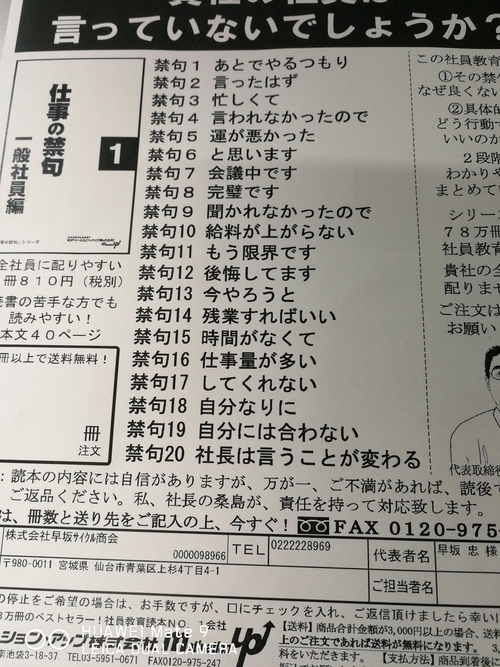 言っていないでしょうか?
仕事の禁句
一般社員編
1
禁句1 あとでやるつもり
禁句2 言ったはず
禁句3 忙しくて
禁句4 言われなかったので
禁句5 運が悪かった
禁句6 と思います
禁句7 会議中です
禁句8 完璧です
禁句9 聞かれなかったので
禁句10 給料が上がらない
禁句11 もう限界です
禁句12 後悔してます
禁句13 今やろうと
禁句14 残業すればいい
禁句15 時間がなくて
禁句16 仕事量が多い
禁句17 してくれない
禁句18 自分なりに
禁句19 自分には合わない
禁句20 社長は言うことが変わる
全社員に配りやすい
冊810円(税別)
読書の苦手な方でも
読みやすい!
本文40ページ
冊以上で送料無料!
冊
注文
この社員教育
①その禁
なぜ良くない
②具体的
どう行動
いいのか
2段階
わかりや
まとめて
シリー
78万冊
社員教育
貴社の全
配りま
ご注文は
お願い
代表取締役
:読本の内容には自信がありますが、万が一、ご不満があれば、読後で
ご返品ください。私、社長の桑島が、責任を持って対応致します。
は、冊数と送り先をご記入の上、今すぐ! FAX 0120-975-
株式会社早坂サイクル商会
0000098966
TEL
0222228969
代表者名
早坂 忠
〒980-0011 宮城県 仙台市青葉区上杉4丁目4-1
ご担当者名
の停止をご希望の場合は、お手数ですが、口にチェックを入れ、ご返信頂けましたら幸い
万冊のベストセラー!社員教育読本NO.
会社
ション・アップ
南池袋3-18-37 TEL03-5951-0671 FAX0120-975-247
【送料】商品合計金額が3,000円以上の場合、送料
上のご注文であれば送料が無料になります。
料をいただきます。【支払方法】商品到着後
HUAWEI Mate 9
LEICA DUAL CAMERA